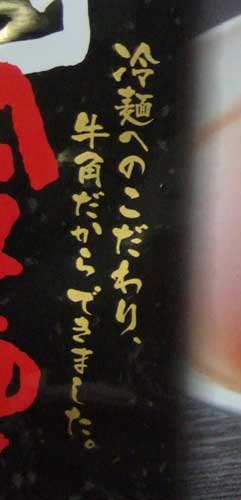 冷麺へのこだわり、
牛角だからできました。